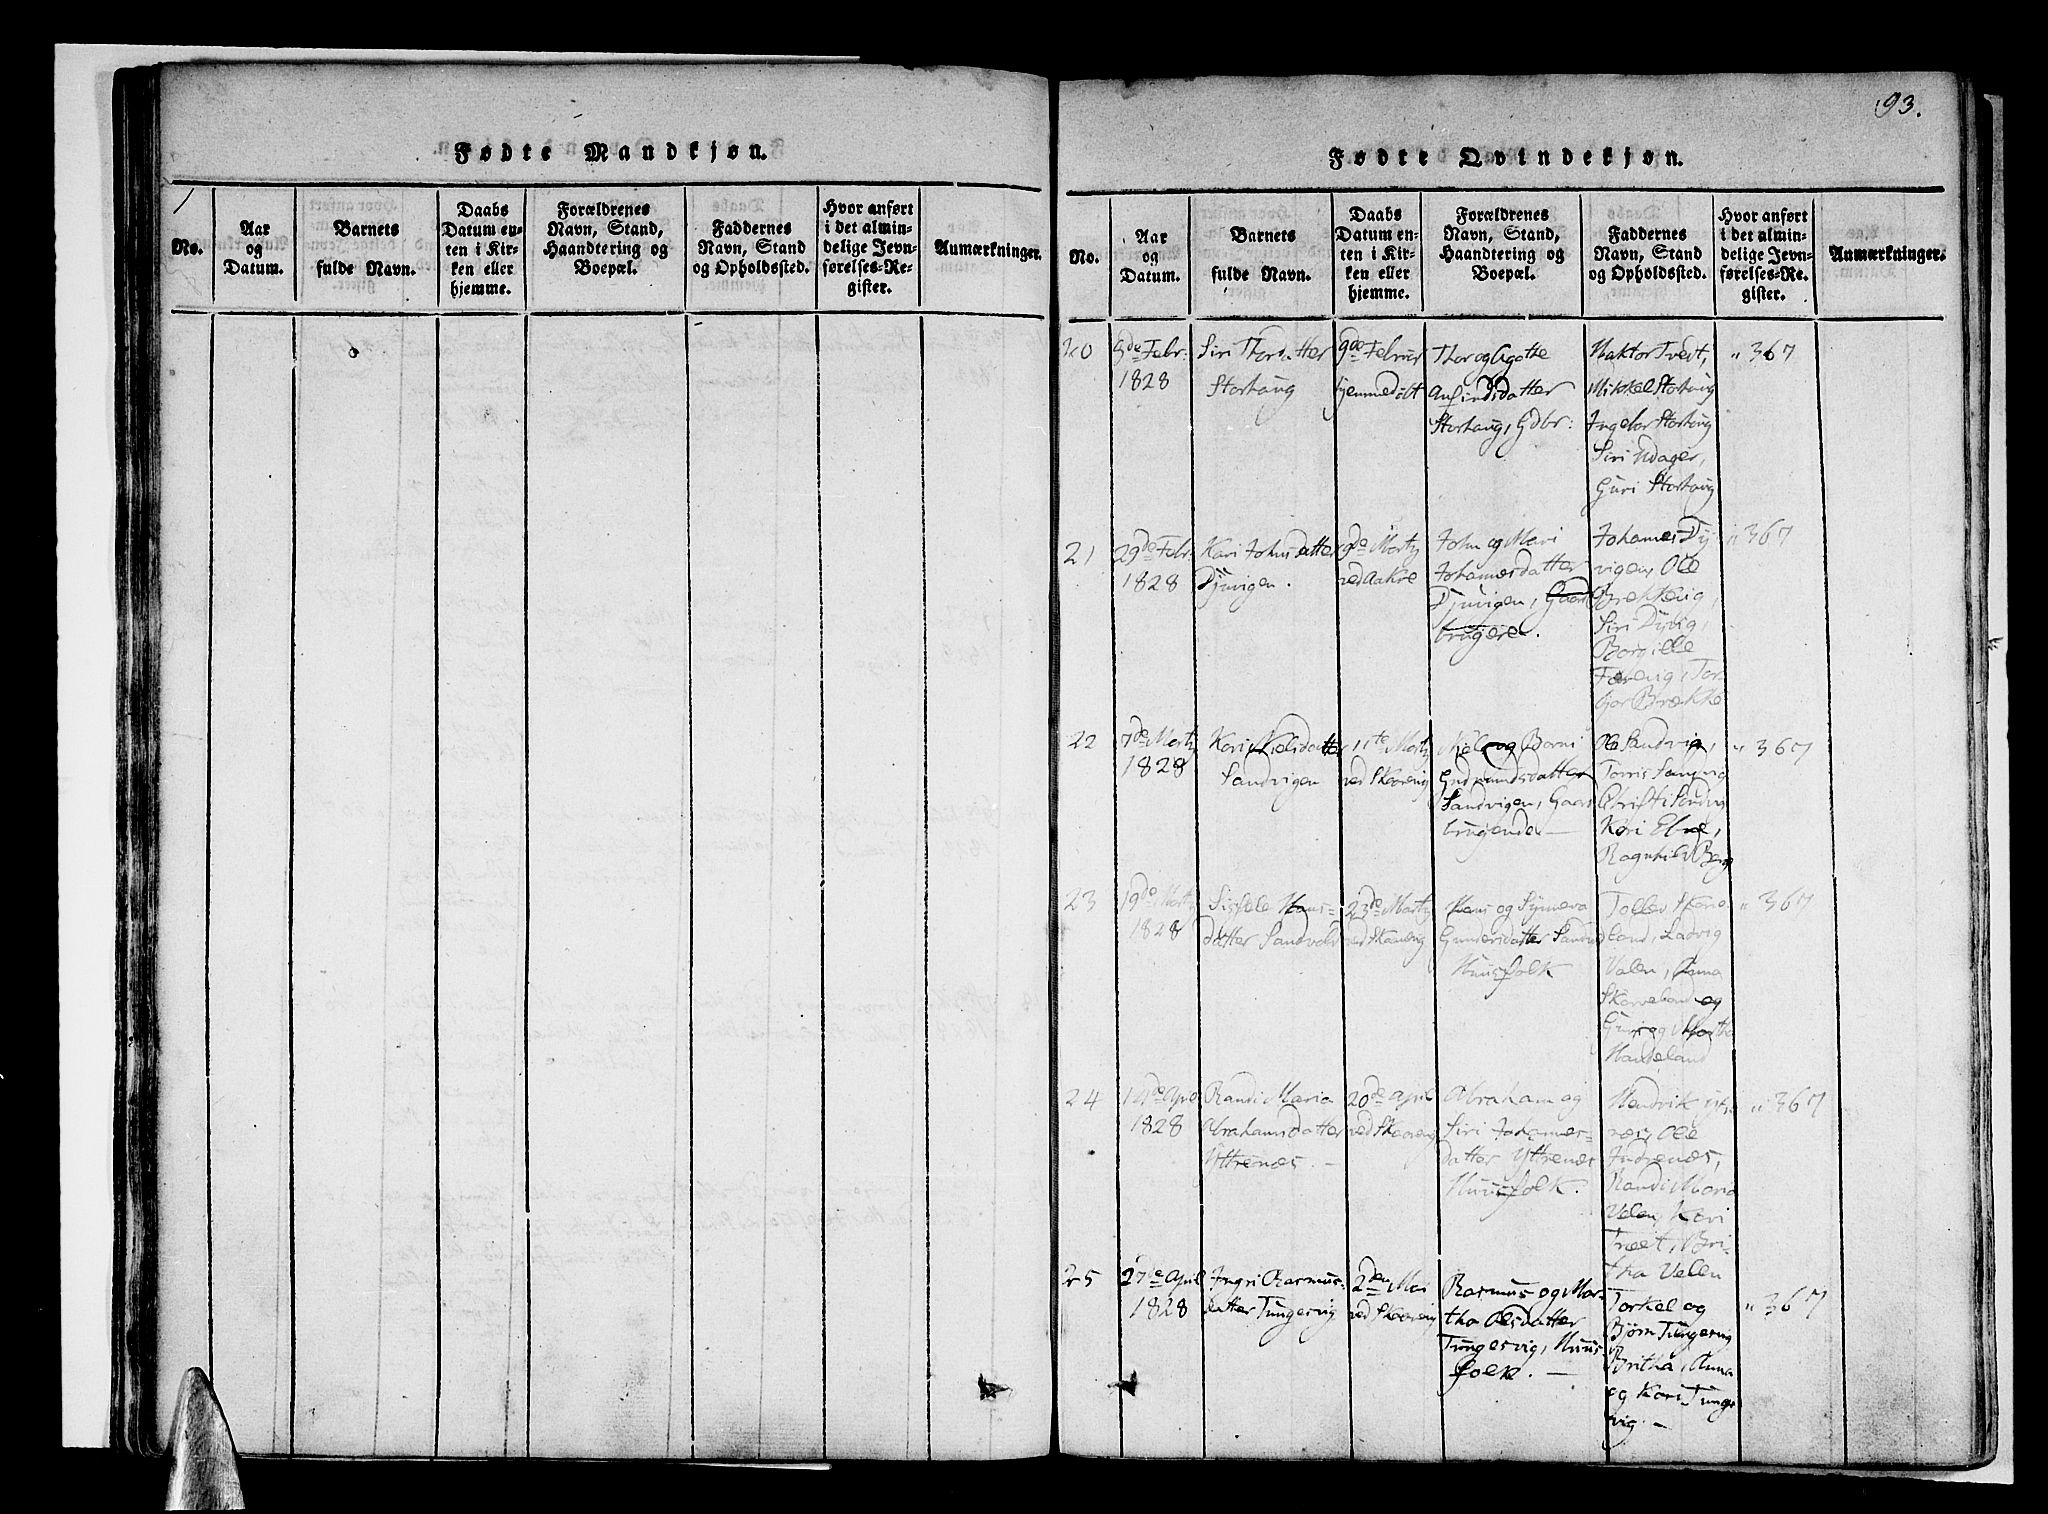 93.
Fødte Mandkjøn.
No.
Aar
og
Datum.
Barnets
fulde Navn.
Daabs
Datum en-
ten i Kir-
ken eller
hjemme.
Forældrenes
Navn, Stand,
Haandtering og
Boepæl.
Faddernes
Navn, Stand
og Opholdssted.
Hvor anført
i det almin-
delige Jevn-
førelses-Re-
gister.
Anmærkninger.
Fødte Qvindekjøn.
No.
Aar
og
Datum.
Barnets
fulde Navn.
Daabs
Datum en-
ten i Kir-
ken eller
hjemme.
Forældrenes
Navn, Stand,
Haandtering og
Boepæl.
Faddernes
Navn, Stand
og Opholdssted.
Hvor anført
i det almin-
delige Jevn-
førelses-Re-
gister.
Anmærkninger.
20
5de Febr:
1828
Siri Thordatter
Storhaug
9de Februar
hjemmedøbt
Thor og Agathe
Anfindsdatter
Storhaug, Gdbr:
Tvedt,
Mikkel Storhaug
Ingebor Storhaug
Siri
Guri Storhaug
" 367
21
29de Febr.
1828
Kari Johnsdatter
Djuvigen.
9de Martz
ved Aakre
John og Mari
Johannesdatter
Djuvigen, Gaard
brugere.
Johannes Dy
vigen, Ole
Siri Dyvig,
Tor-
Brække
" 367
22
7de Martz
1828
Kari Nielsdatter
Sandvigen
11te Martz
ved Skaanevig
Niels og Barni
Gudmundsdatter
Sandvigen, Gaard
brugende. —
Ole Sandvig,
Torris Sandvig
Christi Sandvig
Kari Elne,
Ragnhild Berge
" 367
23
19de Martz
1828
Sissele Hans-
datter Sandvold
23de Martz
ved Skaanevig
Hans og Synneva
Gundersdatter Sandvold
Huusfolk
Tollev Skone-
land, Ladvig
Valen, Anna
og
Guri og Martha
Handeland
" 367
24
14de April
1828
Randi Maria
Abrahamsdatter
Yttrenæs. —
20de April
ved Skaanevig
Abraham og
Siri Johannes-
datter Yttrenæs
Huusfolk.
Hendrik Ytre
næs, Ole
Indrenæs,
Randi Maria
Valen, Kari
Træet, Bri-
tha Valen
" 367
25
27de April
1828
Ingri Rasmus-
datter Tungesvig
2den Mai
ved Skaanevig
Rasmus og Mar-
tha Olsdatter
Tungesvig, Huus-
folk. —
Torkel og
Bjørn Tungesvig
Britha, Anna
og Kari Tunge
vig. —
" 367